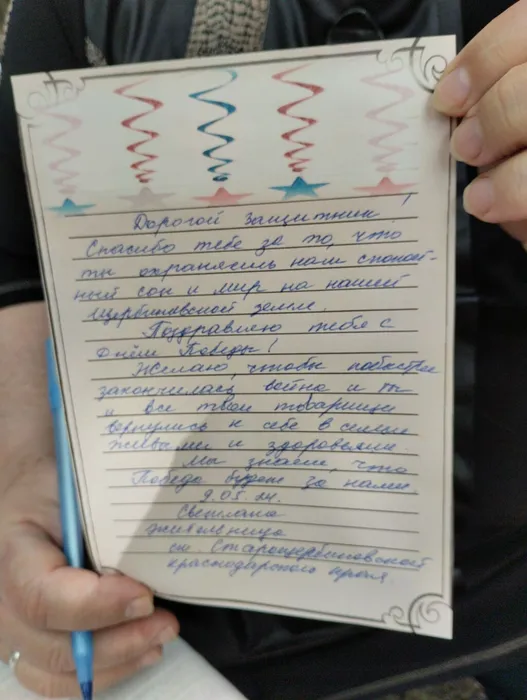 Дорогой защитник!
Спасибо тебе за то, что
ты охраняешь наш спокой-
ный сон и мир на нашей
Щербиновской земле.
Поздравляю тебя с
Днём Победы!
Желаю, чтобы побыстрее
закончилась война и ты
и все твои товарищи
вернулись к себе в семьи
живыми и здоровыми.
Мы знаем, что
Победа будет за нами.
9.05.24.
Светлана
жительница
ст. Старощербиновской
краснодарского края.